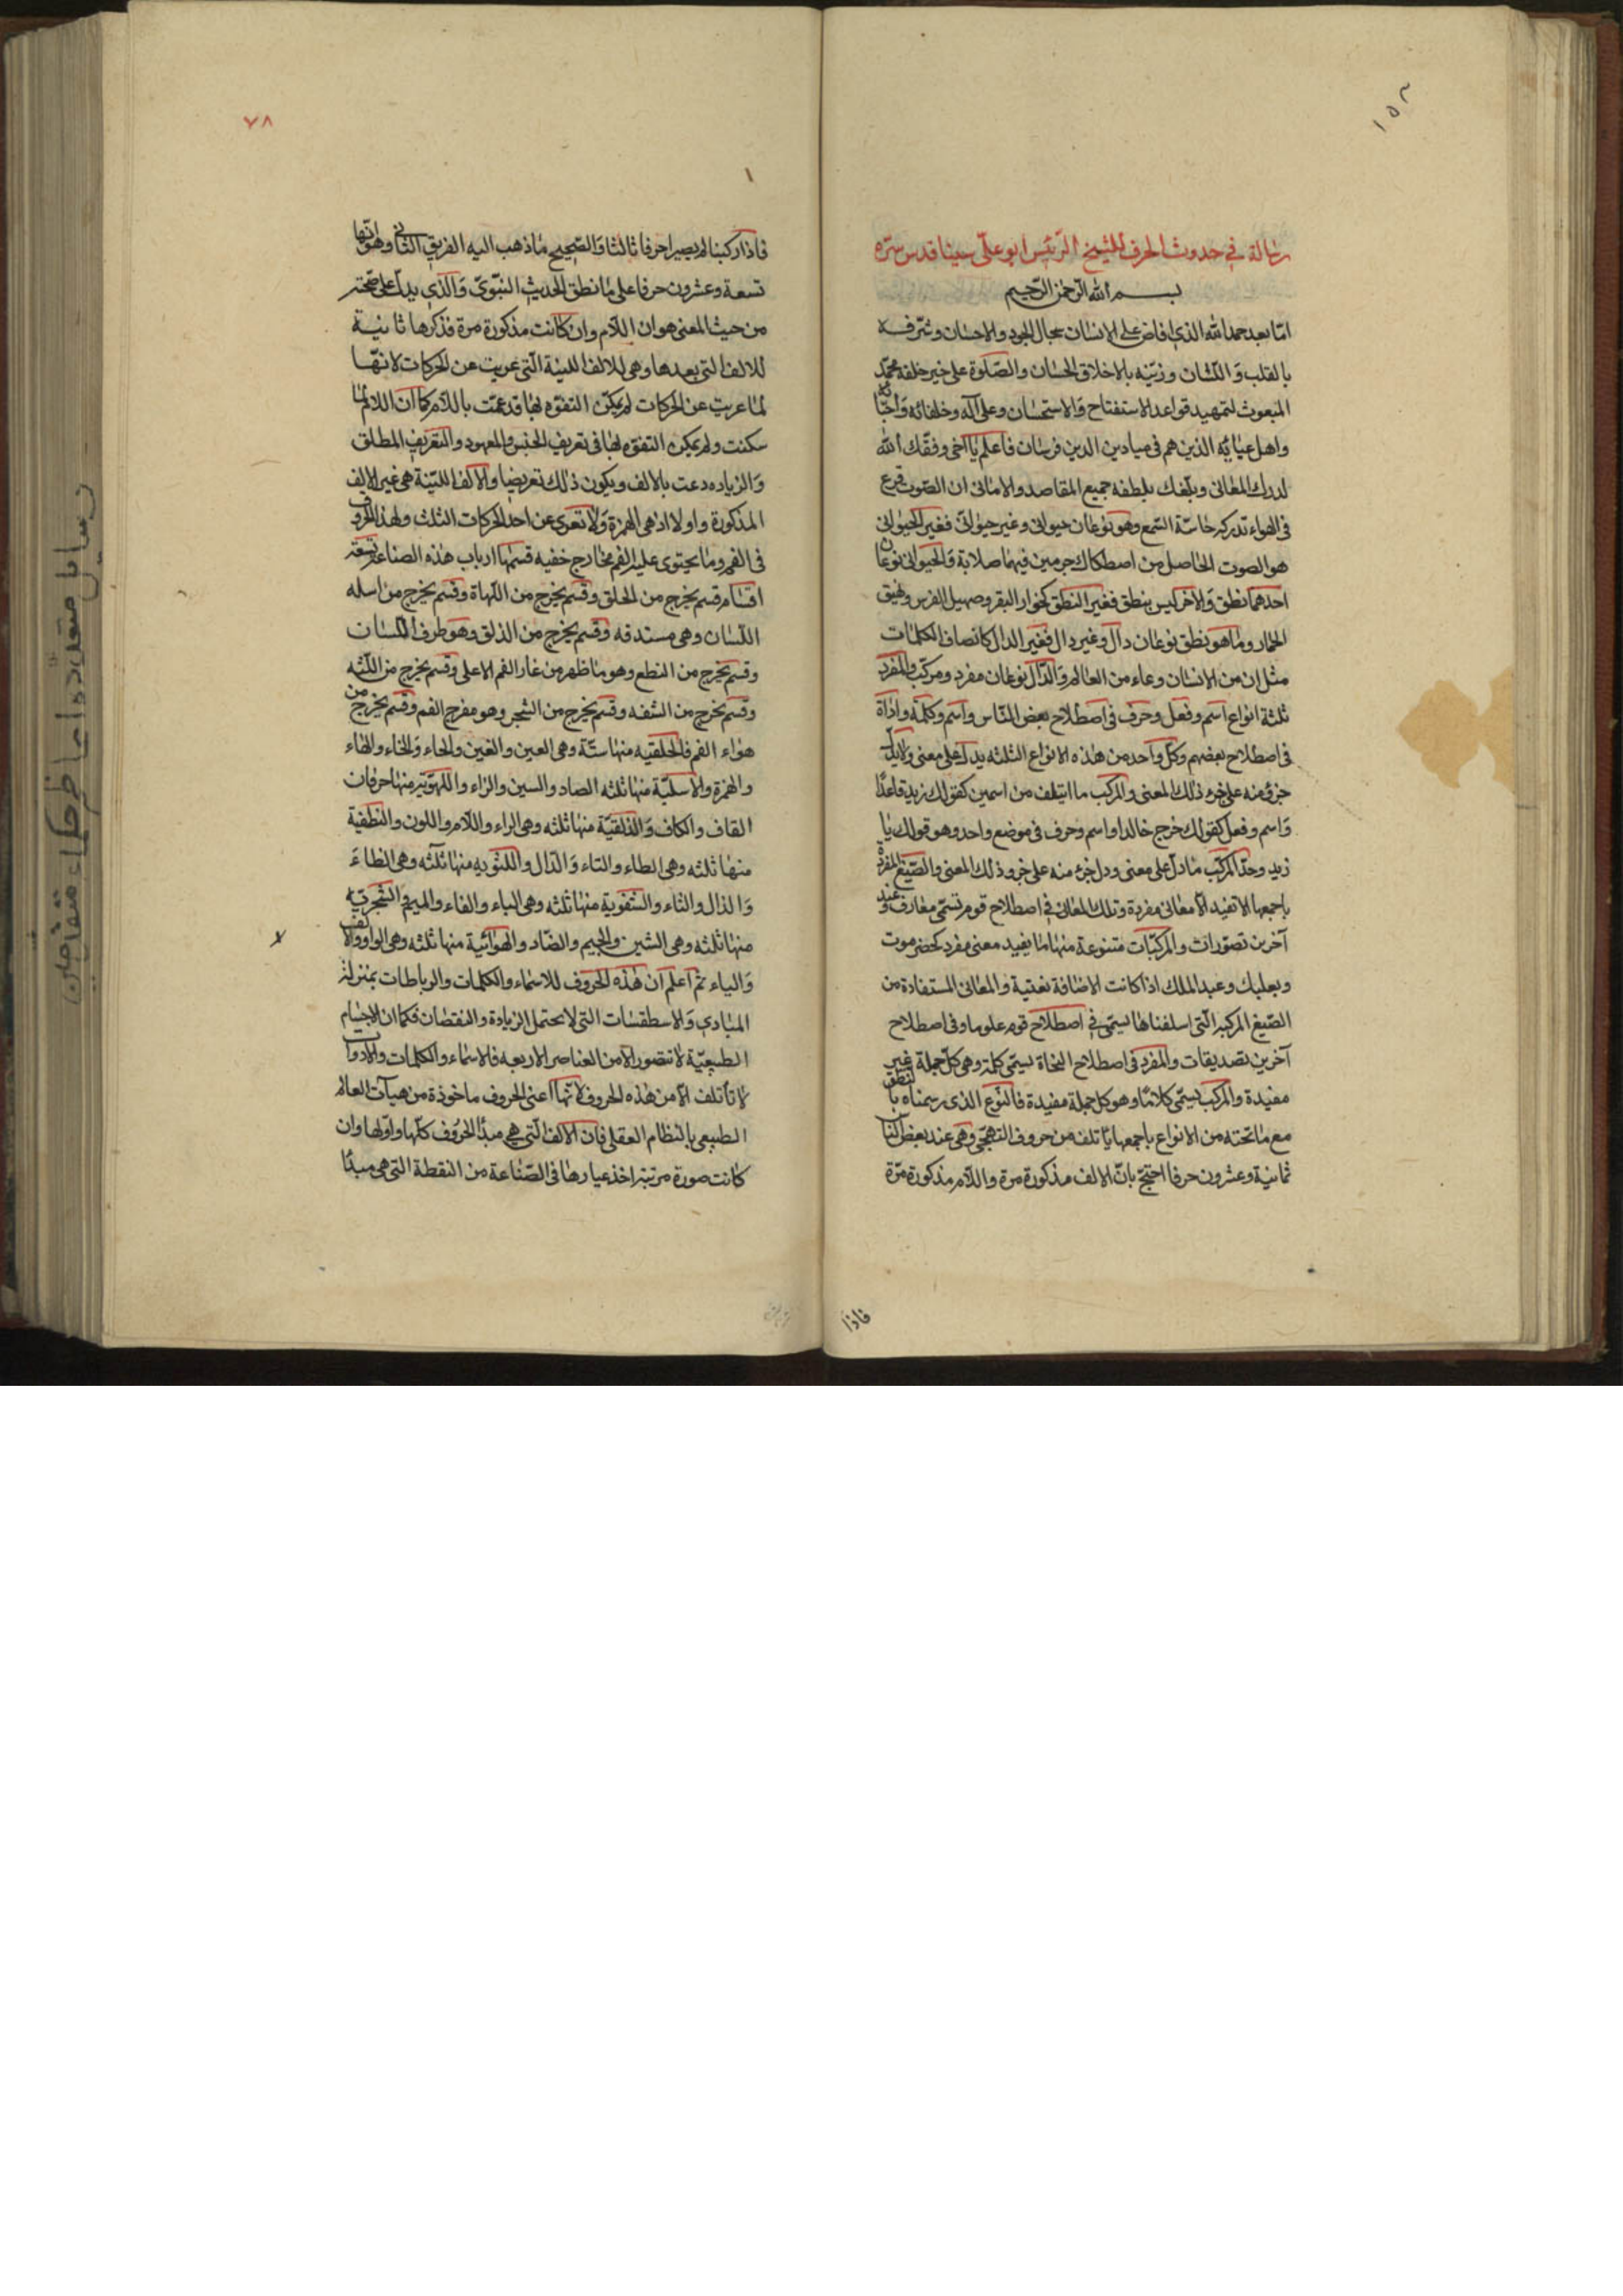 ١٥٣
رسالة في حدوث الحرف للشيخ الرئيس ابو علي سينا قدس سره
بسم الله الرحمن الرحيم
امّا بعد حمد الله الذي افاض على الانسان سجال الجود والاحسان وشرّفه
بالقلب واللسان وزيّنه بالاخلاق الحسان والصّلوة على خير خلقه محمّد
المبعوث لتمهيد قواعد الاستفتاح والاستحسان وعلى آله وخلفائه واحبّائه
واهل عبائه الذين هم في ميادين الدين فرسان فاعلم يا اخى وفقك الله
لدرك المعانى وبلّغك بلطفه جميع المقاصد والامانى ان الصّوت قرع
فى الهواء تدركه حاسّة السّمع وهو نوعان حيوانى وغير حيوانىّ فغير الحيوانى
هو الصوت الحاصل من اصطكاك جرمين فيهما صلابة والحيوانى نوعان
احدهما نطق والاخر ليس بنطق فغير النطق كخوار البقر وصهيل الفرس ونهيق
الحمار وما هو نطق نوعان دالّ وغير دال فغير الدال كانصاف الكلمات
مثل ان من الانسان وعاء من العالم والدّالّ نوعان مفرد ومركّب والمفرد
ثلثة انواع اسم وفعل وحرف فى اصطلاح بعض النّاس واسم وكلمة واداة
فى اصطلاح بعضهم وكلّ واحد من هذه الانواع الثلثه يدلّ على معنى ولا يدلّ
جزؤ منه على جزء ذلك المعنى والمركب ما ايتلف من اسمين كقولك زيد قاعدًا
واسم وفعل كقولك خرج خالد او اسم وحرف فى موضع واحد وهو قولك يا
زيد وحدّ المركّب ما دلّ على معنى ودل جزء منه على جزو ذلك المعنى والصّيغ المفردة
باجمعها لا تفيد الّا معانى مفردة وتلك المعانى فى اصطلاح قوم تسمّى معارف وعند
آخرين تصوّرات والمركبّات متنوعة منها ما يفيد معنى مفرد كحضرموت
وبعلبك وعبد الملك اذا كانت الاضافة نعتية والمعانى المستفادة من
الصّيغ المركبه الّتى اسلفناها يسمّى فى اصطلاح قوم علوما وفى اصطلاح
آخرين تصديقات والمفرد فى اصطلاح النحاة يسمّى كلمة وهى كلّ جملة غير
مفيدة والمركب يسمّى كلامًا وهو كل جملة مفيدة فالنّوع الذى رسمناه بالنطق
مع ما تحته من الانواع باجمعها يأتلف من حروف التهجّى وهى عند بعض النّاس
ثمانية وعشرون حرفا احتجّ بانّ الالف مذكورة مرة واللّام مذكورة مرّة
فاذا
٧٨
١
فاذا ركبنا لم يصيرا حرفا ثالثا والصّحيح ما ذهب اليه الفريق الثانى وهو انّها
تسعة وعشرون حرفا على ما نطق الحديث النبّوىّ والّذى يدلّ على صحّته
من حيث المعنى هو ان اللّام وان كانت مذكورة مرة فذكرها ثانية
للالف التى بعدها وهى للالف اللينة الّتى عريت عن الحركات لانّها
لمّا عريت عن الحركات لم يمكن التفوّه بها فدعمّت باللّام كما انّ اللام لمّا
سكنت ولم يمكن التفوّه بها فى تعريف الجنس والمعهود والتعريف المطلق
والزياده دعت بالالف ويكون ذلك تعريضا والالف اللّينة هى غير الالف
المذكورة اولا اذ هى الهمزة ولا تعرى عن احد الحركات الثلث ولهذه الحروف
فى الفم وما يحتوى عليه الفم مخارج خفيه قسّمها ارباب هذه الصناعة تسعة
اقسام قسم يخرج من الحلق وقسم يخرج من اللّهاة وقسم يخرج من اسله
اللّسان وهى مستدقه وقسم يخرج من الذلق وهو طرف اللّسان
وقسم يخرج من النطع وهو ما ظهر من غار الفم الاعلى وقسم يخرج من اللّثه
وقسم يخرج من الشفه وقسم يخرج من الشجر وهو مفرج الفم وقسم يخرج من
هواء الفم فالحلقيه منها ستّة وهى العين والغين والحاء والخاء والهاء
والهمزة والاسليّة منها ثلثه الصاد والسين والزاء واللّهويّة منها حرفان
القاف والكاف والذّلقيّة منها ثلثه وهى الراء واللّام واللون والنطفية
منها ثلثه وهى الطاء والتاء والدّال واللثويه منها ثلثه وهى الظاء
والذال والثاء والشفويّة منها ثلثه وهى الباء والفاء والميم والشّجريّه
منها ثلثه وهى الشين والجيم والضّاد والهوائيّة منها ثلثه وهى الواو والالف
والياء ثم اعلم ان هذه الحروف للاسماء والكلمات والرباطات بمنزلة
المبادى والاسطقسات التى لا تحتمل الزيادة والنقصان فكما ان الاجسام
الطبيعيّة لا تتصور الّا من العناصر الاربعه فالاسماء والكلمات والادوات
لا تأتلف الّا من هذه الحروف لانّها اعنى الحروف ماخوذة من هيآت العالم
الطبيعى بالنظام العقلى فان الالف الّتى هى مبدأ الحروف كلّها واوّلها وان
كانت صورة مرتبة اخذ عيارها فى الصّناعة من النقطة التى هى مبدأ
رسايل متعدّده اعاظم حكماء متقدمين